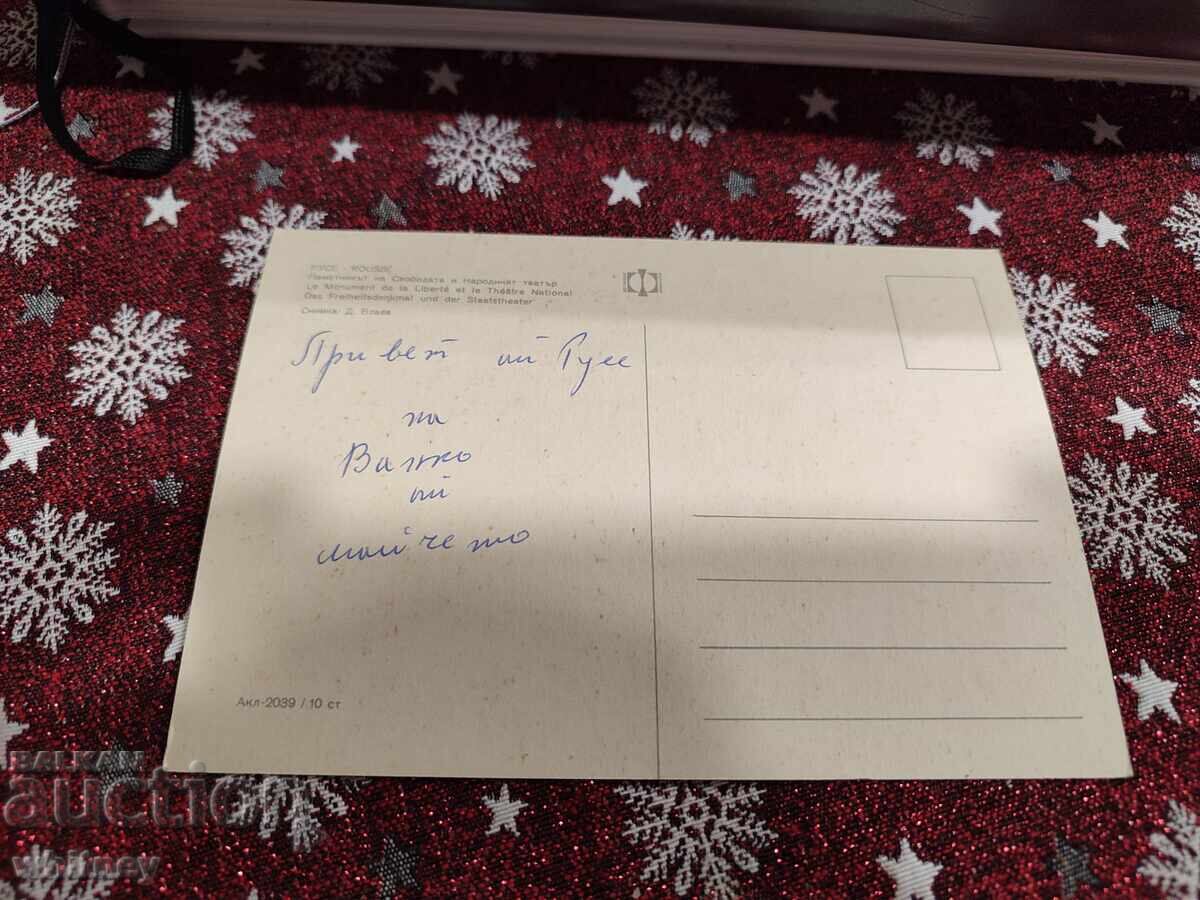 РУСЕ - ROUSSE
Паметникът на Свободата и Народният театър
Le Monument de la Liberté et le Théâtre National
Das Freiheitsdenkmal und der Staatstheater
Снимка: Д. Влаев
Привет от Русе
на
Ванко
от
майчето
Акл-2039 / 10 ст
BALKAN
auction
vlrifney